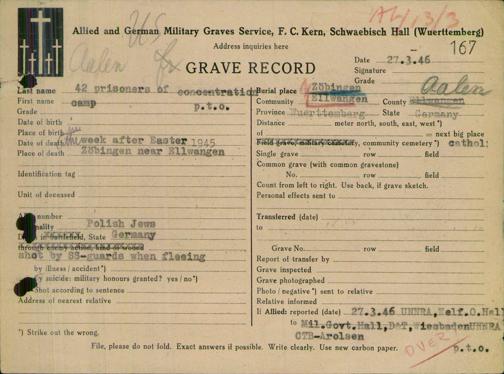 AL/13/3
US
Allied and German Military Graves Service, F. C. Kern, Schwaebisch Hall (Wuerttemberg)
Address inquiries here
167
Aalen
GRAVE RECORD
Date 27.3.46
Signature
Grade
Aalen
Last name 42 prisoners of concentration
First name camp
Grade p.t.o.
Date of birth
Place of birth
Date of death week after Easter 1945
Place of death Zöbingen near Ellwangen
Identification tag
Unit of deceased
number
nality Polish Jews
State Germany
shot by SS-guards when fleeing
by illness / accident*)
suicide: military honours granted? yes / no*)
Shot according to sentence
Address of nearest relative
*) Strike out the wrong.
Burial place Zöbingen
Community Ellwangen County Ellwangen
Province Wuerttemberg State Germany
Distance meter north, south, east, west*)
of = next big place
Field grave, military cemetery, community cemetery*) cathol:
Single grave row field
Common grave (with common gravestone)
No. row field
Count from left to right. Use back, if grave sketch.
Personal effects sent to
Transferred (date)
to
Grave No. row field
Report of transfer by
Grave inspected
Grave photographed
Photo / negative*) sent to relative
Relative informed
Allied: reported (date) 27.3.46 UNRRA, Welf.O.Hall
to Mil.Govt.Hall, D&T, Wiesbaden UNRRA
CTB-Arolsen
File, please do not fold. Exact answers if possible. Write clearly. Use new carbon paper.
OVER
p.t.o.